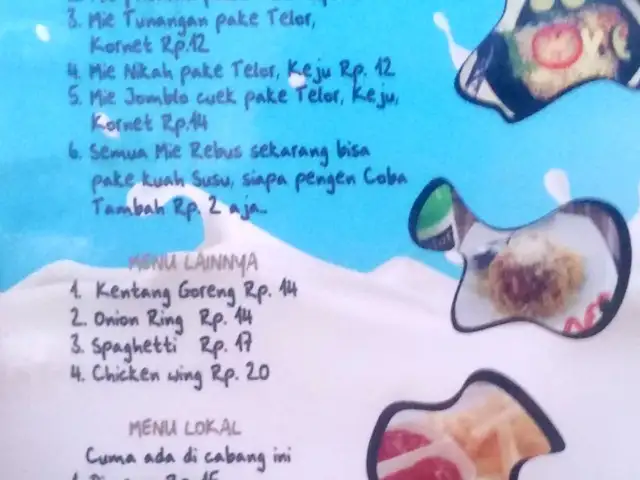 3. Mie Tunangan pake Telor,
Kornet Rp.12
4. Mie Nikah pake Telor, Keju Rp. 12
5. Mie Jomblo cuek pake Telor, Keju,
Kornet Rp.14
6. Semua Mie Rebus sekarang bisa
pake kuah Susu, siapa pengen Coba
Tambah Rp. 2 aja..
MENU LAINNYA
1. Kentang Goreng Rp. 14
2. Onion Ring Rp. 14
3. Spaghetti Rp. 17
4. Chicken wing Rp. 20
MENU LOKAL
Cuma ada di cabang ini